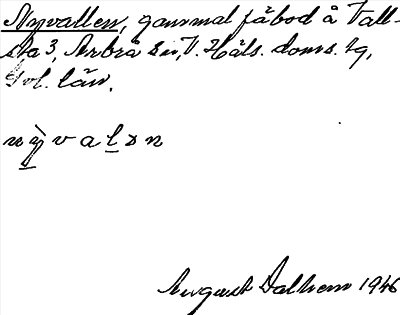 Nyvallen, gammal fäbod å Tall-
sta 3, Arbrå sn, V. Häls. doms. tg,
Gvl. län.
nỳvalən
August Dalhem 1946